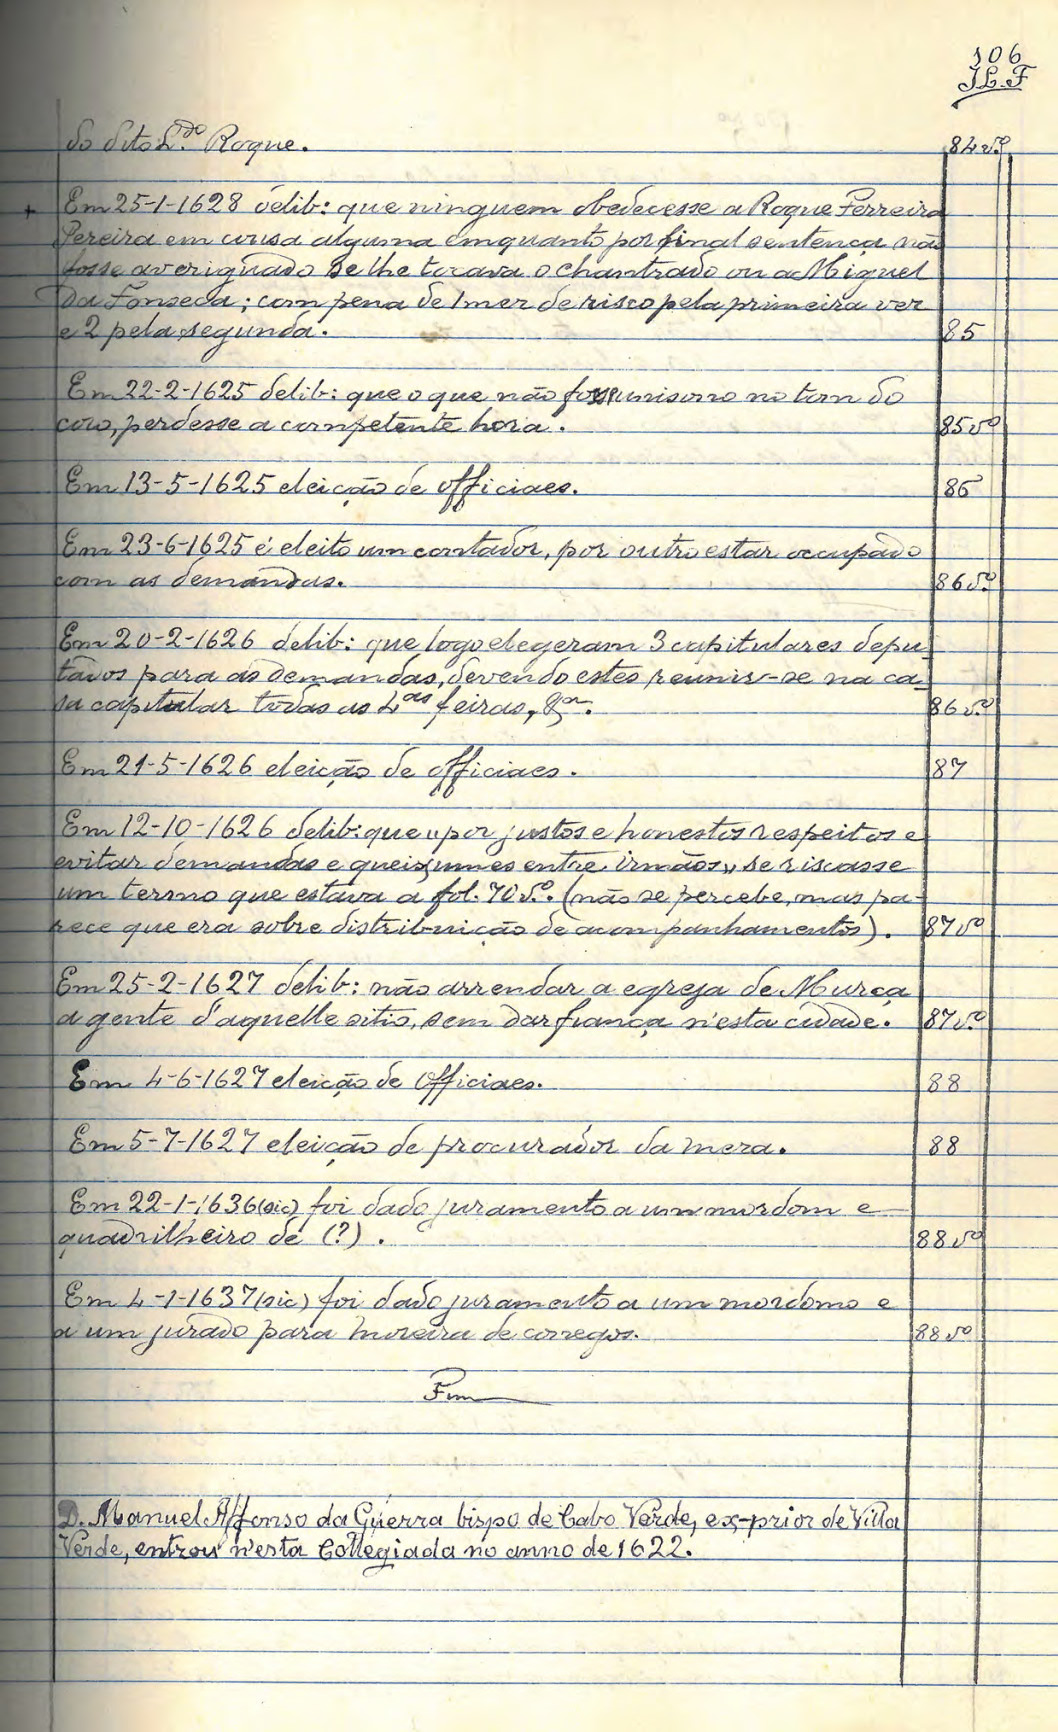 106
J.L.F
do dito L.do Roque. 84 vº
+ Em 25-1-1628 delib: que ninguem obedecesse a Roque Ferreira
Pereira em cousa alguma emquanto por final sentença não
fosse averiguado se lhe tocava o chantrado ou a Miguel
da Fonseca; com pena de 1 mez de risco pela primeira vez
e 2 pela segunda. 85
Em 22-2-1625 delib: que o que não fosse unisono no tom do
côro, perdesse a competente hora. 85 vº
Em 13-5-1625 eleição de officiaes. 86
Em 23-6-1625 é eleito um contador, por outro estar occupado
com as demandas. 86 vº
Em 20-2-1626 delib: que logo elegeram 3 capitulares depu-
tados para as demandas, devendo estes reunir-se na ca-
sa capitular todas as 4.as feiras, 86 vº
Em 21-5-1626 eleição de officiaes. 87
Em 12-10-1626 delib: que "por justos e honestos respeitos e
evitar demandas e queixumes entre irmãos" se riscasse
um termo que estava a fol. 70 vº. (não se percebe, mas pa-
rece que era sobre distribuição de acompanhamentos). 87 vº
Em 25-2-1627 delib: não arrendar a egreja de Murça
a gente d'aquelle sitio, sem dar fiança n'esta cidade. 87 vº
Em 4-6-1627 eleição de officiaes. 88
Em 5-7-1627 eleição de procurador da meza. 88
Em 22-1-1636 (sic) foi dado juramento a um mordom e
quadrilheiro de (?). 88 vº
Em 4-1-1637 (sic) foi dado juramento a um mordomo e
a um jurado para Moreira de conegos. 88 vº
Fim
D. Manuel Affonso da Guerra bispo de Cabo Verde, ex-prior de Villa
Verde, entrou n'esta Collegiada no anno de 1622.